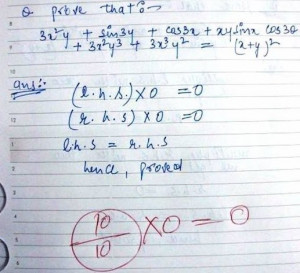 Q prove that:-
3x²y + sin3y + cos3x + xysinx cos3θ
+ 3x²y³ + 3x³y² = (x+y)²
Ans:-
(l.h.s.) x 0 = 0
(r.h.s) x 0 = 0
l.h.s = r.h.s
hence, proved
10/10 x 0 = 0